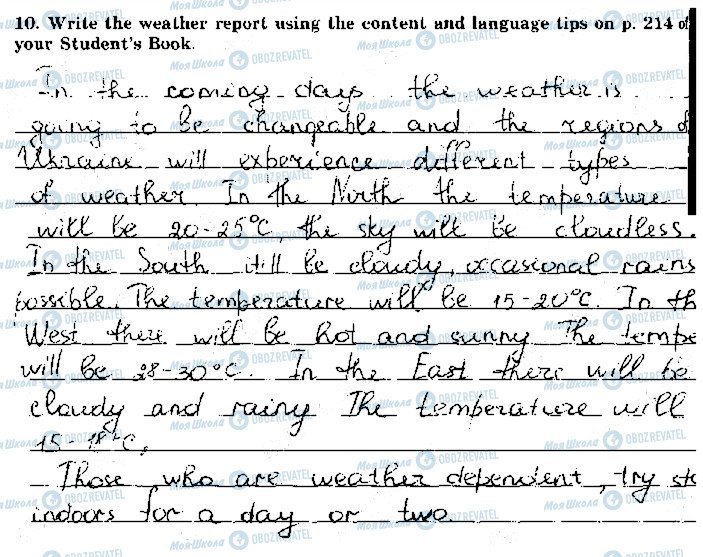 10. Write the weather report using the content and language tips on p. 214 of
your Student's Book.
In the coming days the weather is
going to be changeable and the regions of
Ukraine will experience different types
of weather. In the North the temperature
will be 20-25°C, the sky will be cloudless.
In the South it'll be cloudy, occasional rains
possible. The temperature will be 15-20°C. In th
West there will be hot and sunny The tempe
will be 28-30°C. In the East there will be
cloudy and rainy The temperature will
15-18°C.
Those who are weather dependent, try sta
indoors for a day or two.
Моя Школа OBOZREVATEL